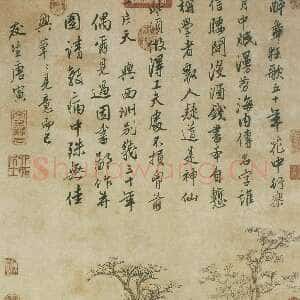 醉舞狂歌五十年花中行樂
月中眠漫勞海內傳名字誰
信腰間沒酒錢書本自慙
稱學者眾人疑道是神仙
須做得工夫處不損胷前
一片天 與西洲別幾三十年
偶爾見過因書鄙作并
圖請教病中殊無佳
興草草見意而已
友生唐寅
Shufawang.CN